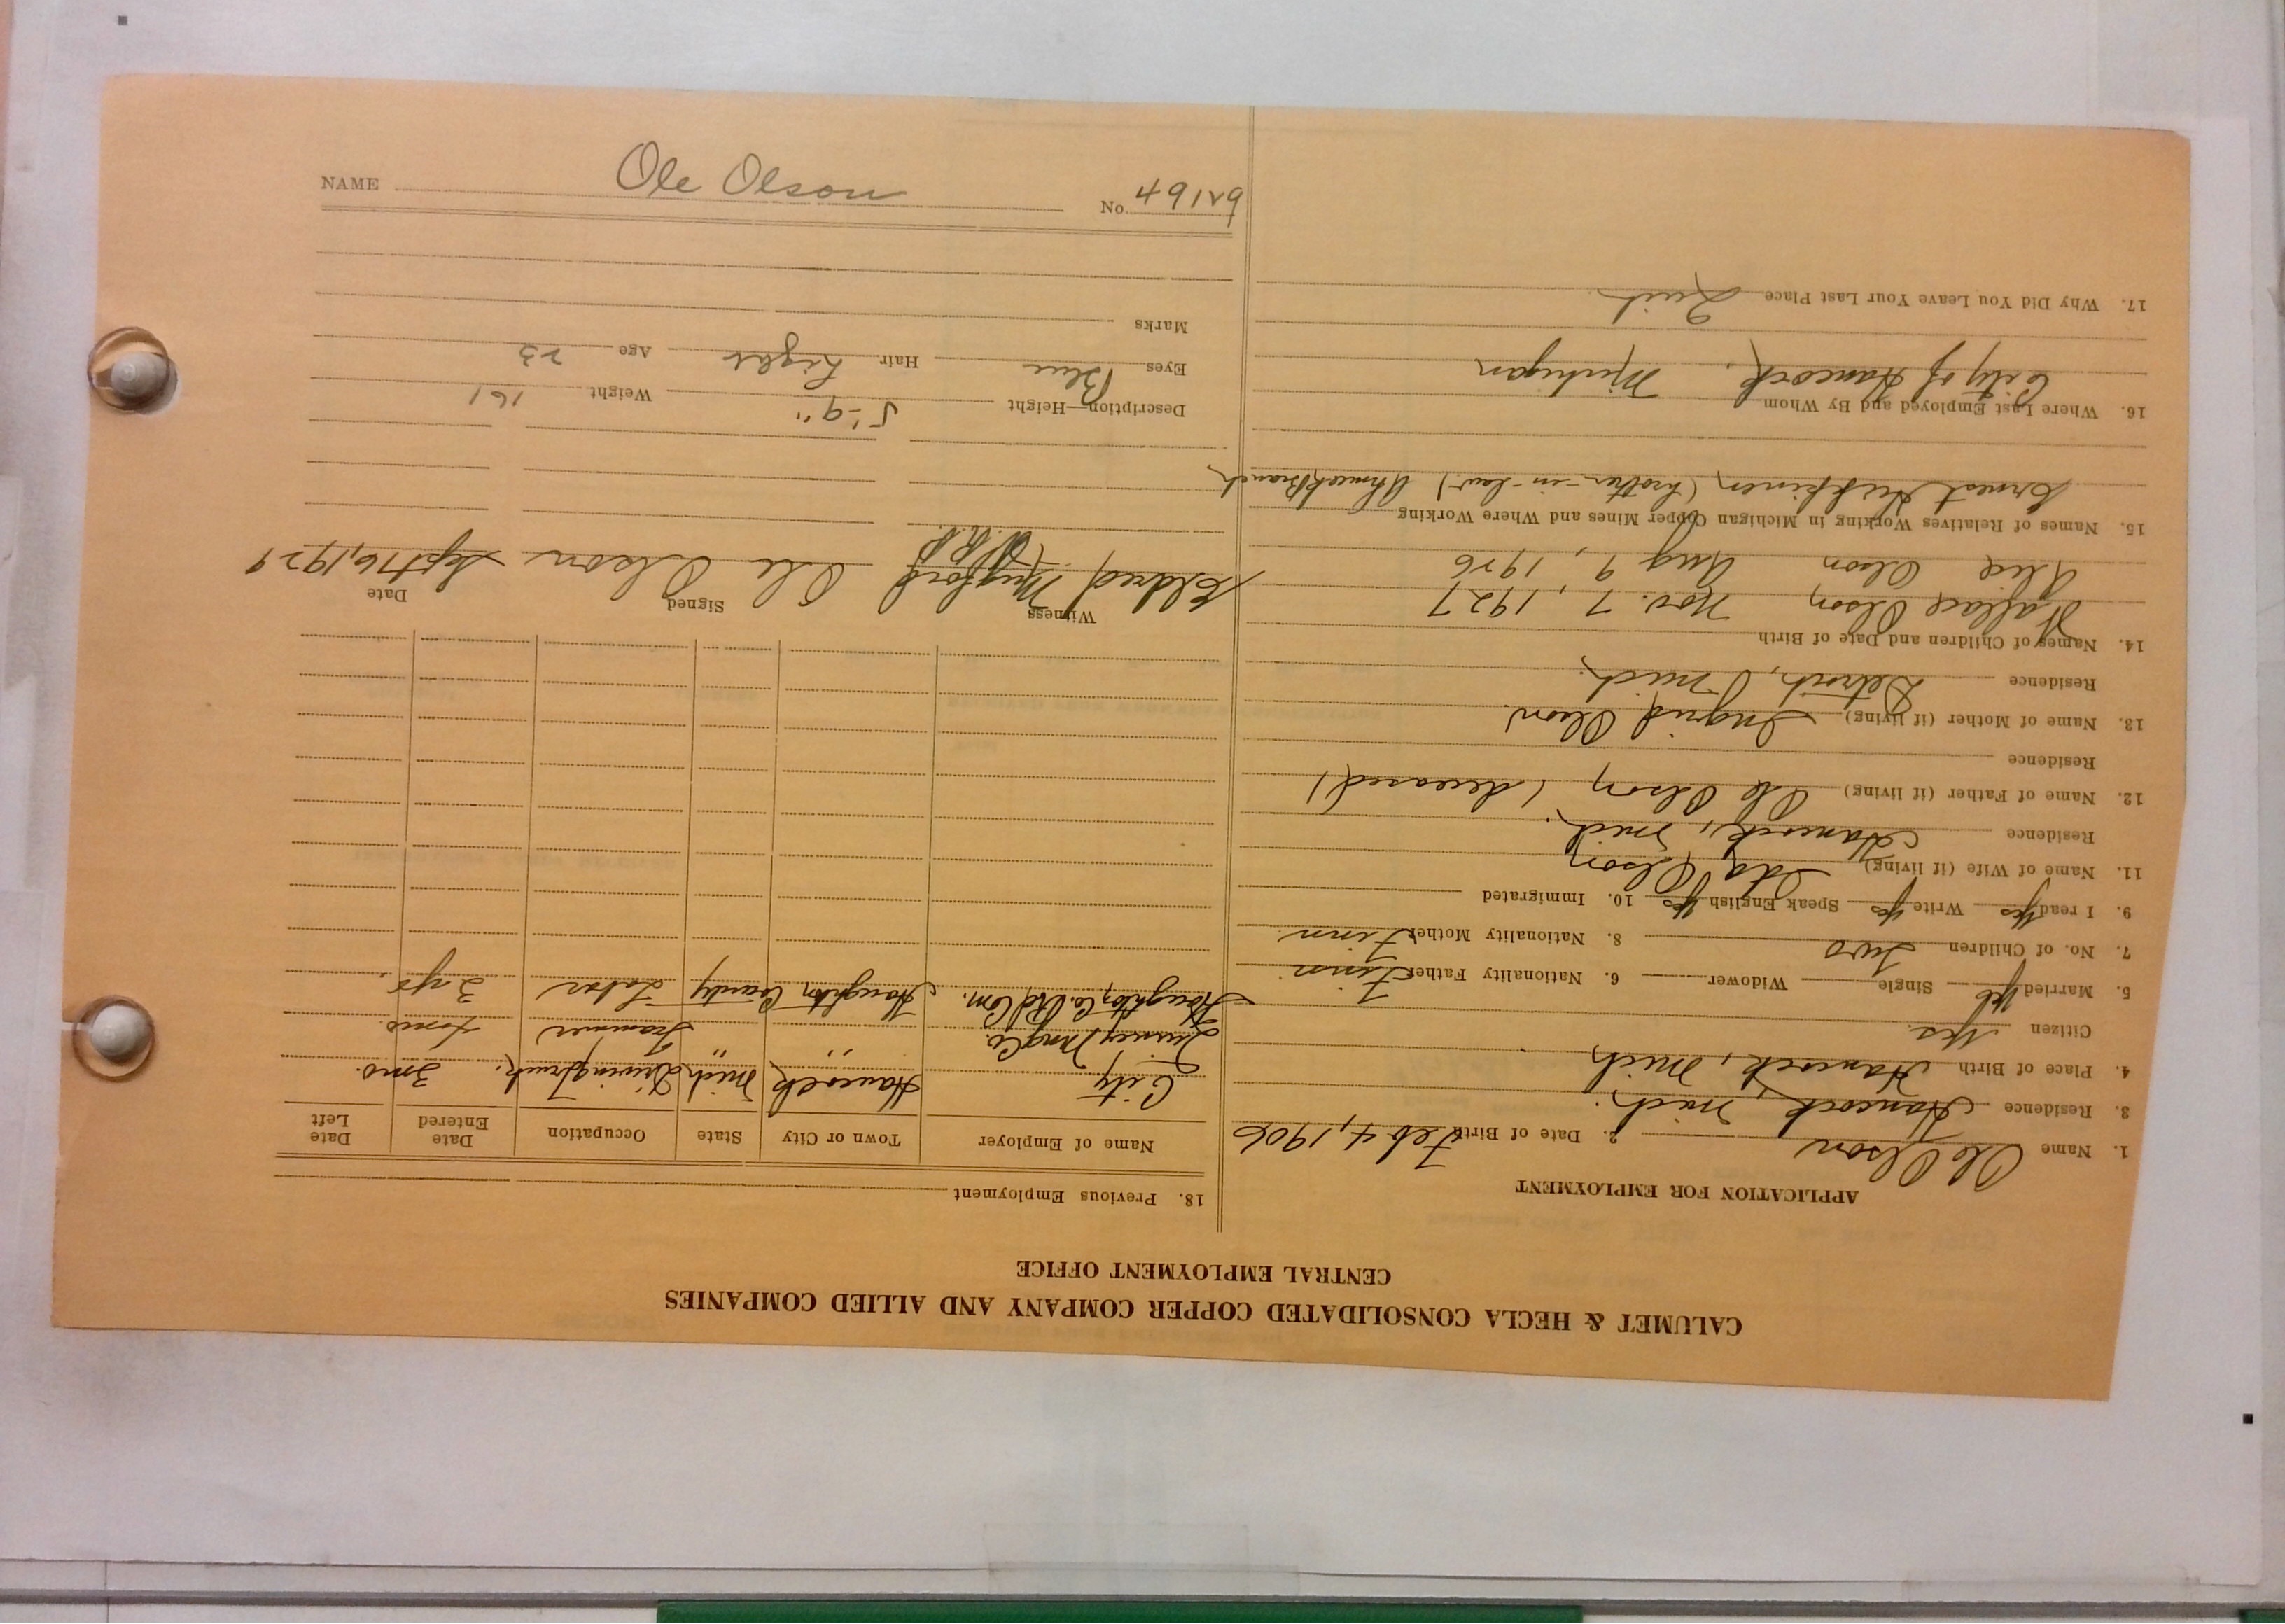 CALUMET & HECLA CONSOLIDATED COPPER COMPANY AND ALLIED COMPANIES
CENTRAL EMPLOYMENT OFFICE
APPLICATION FOR EMPLOYMENT
1. Name Ole Olson 2. Date of Birth Feb 4, 1906
3. Residence Hancock, Mich.
4. Place of Birth Hancock, Mich
Citizen Yes.
5. Married Yes Single Widower 6. Nationality Father Finn
7. No. of Children Two 8. Nationality Mother Finn.
9. I read Yes Write Yes Speak English Yes 10. Immigrated
11. Name of Wife (if living) Ida Olson
Residence Hancock, Mich.
12. Name of Father (if living) Ole Olson (deceased)
Residence
13. Name of Mother (if living) Ingrid Olson
Residence Detroit, Mich.
14. Names of Children and Date of Birth
Wallace Olson Nov. 7, 1927
Alice Olson Aug 9, 1926
15. Names of Relatives Working in Michigan Copper Mines and Where Working
Ernest (brother-in-law) Ahmeek Branch
16. Where Last Employed and By Whom
City of Hancock, Michigan
17. Why Did You Leave Your Last Place Quit.
18. Previous Employment
Name of Employer Town or City State Occupation Date Entered Date Left
City Hancock Mich Driving Truck. 3 mo.
Quincy Mng Co. " " Trammer 4 mo.
Houghton Co. Rd Com. Houghton County Labor 2 yr
Witness Signed Date
Eldred Mugford Ole Olson Sept 16, 1929
Description—Height 5'-9" Weight 161
Eyes Blue Hair Light Age 23
Marks
NAME Ole Olson No. 49129